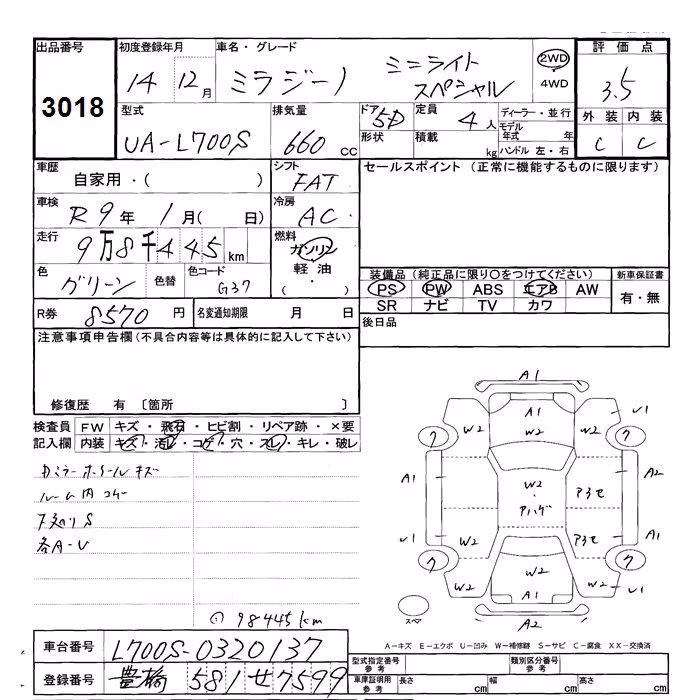 出品番号 初度登録年月 車名・グレード 評価点
3018 14 12月 ミラジーノ ミニライト スペシャル 2WD ・ 4WD 3.5
型式 排気量 ドア 5D 定員 4人 ディーラー・並行 外装 内装
UA-L700S 660 cc 形状 積載 kg モデル年式 年 ハンドル 左・右 C C
車歴 自家用・( ) シフト FAT セールスポイント (正常に機能するものに限ります)
車検 R9年 1月( 日) 冷房 AC
走行 9万8千445 km 燃料 ガソリン 軽油 ・ ( )
色 グリーン 色替 色コード G37 装備品 (純正品に限り○をつけてください) 新車保証書
PS PW ABS エアB AW 有・無
R券 8570円 名変通知期限 月 日 SR ナビ TV カワ
注意事項申告欄 (不具合内容等は具体的に記入して下さい) 後日品
修復歴 有 〔箇所 〕
検査員 FW キズ・飛石・ヒビ割・リペア跡・×要
記入欄 内装 キズ・汚レ・コゲ・穴・スレ・キレ・破レ
カミラー ホイール キズ
ルーム内 コゲ
下廻り S
各A-U
① 98445km
A1
A1 U1
W2 W2
ワ ワ
A1 W2 ・ アハゲ ア3セ A2
U1 W2 ア3セ A1
ワ ワ
W2 W2 W2 U1
A1
スペ A2
A-キズ E-エクボ U-凹み W-補修跡 S-サビ C-腐食 XX-交換済
車台番号 L700S-0320137 型式指定番号 参考 類別区分番号 参考
登録番号 豊橋 581 せ 7599 車庫証明用 参考 長さ cm 幅 cm 高さ cm